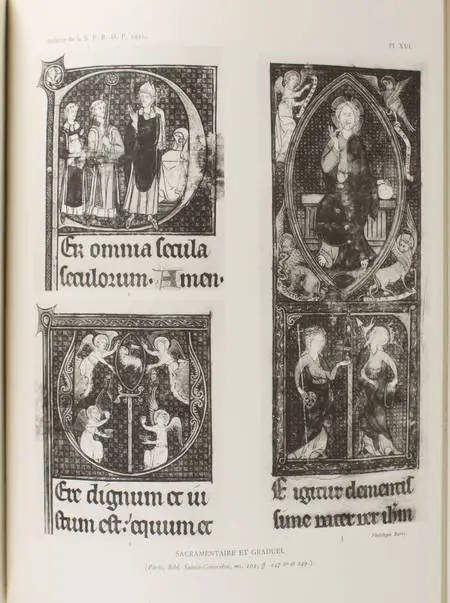 Bulletin de la S. F. R. M. P. 1921.
Pl. XVI.
Er omnia secula
seculorum. Amen.
Ere dignum et iu
stum est: equum et
E igitur clementis
sime pater per ihm
Philotypie Berry.
SACRAMENTAIRE ET GRADUEL
(Paris, Bibl. Sainte-Geneviève, ms. 102, ff. 147 vº et 149.)